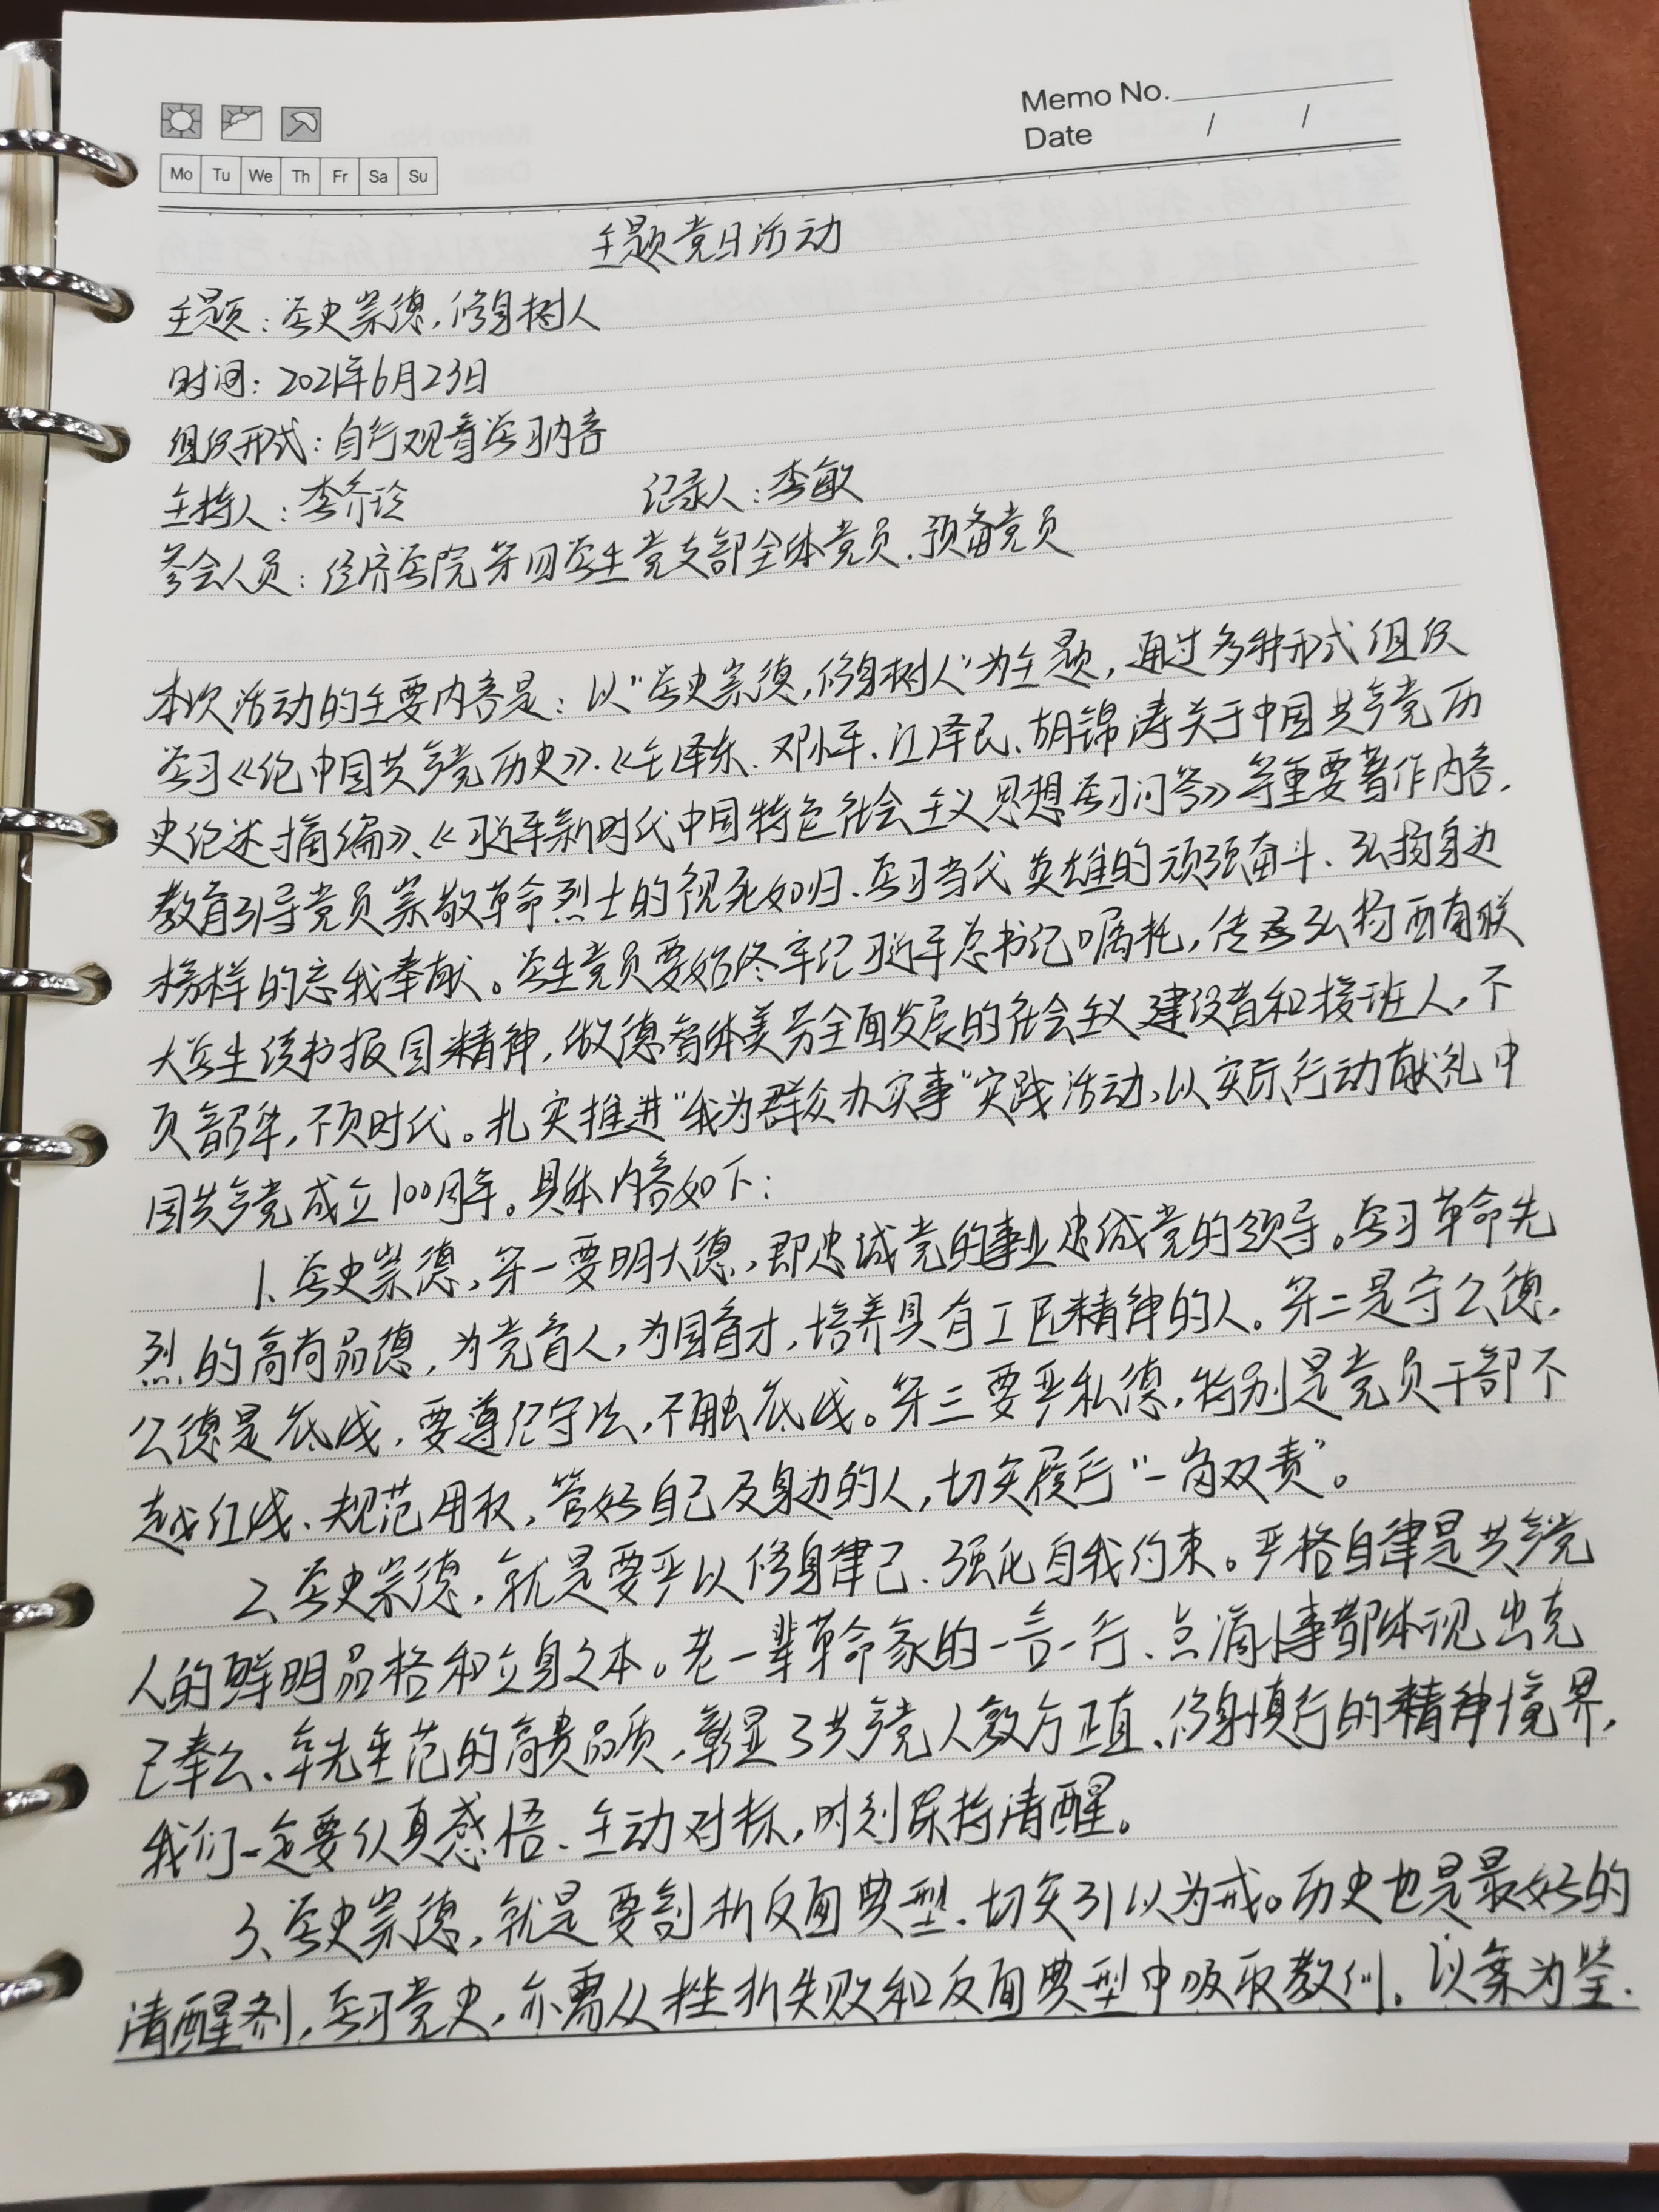 Memo No.
Date / /
Mo Tu We Th Fr Sa Su
主题党日活动
主题：学史崇德，修身树人
时间：2021年6月23日
组织形式：自行观看学习内容
主持人：李乔玲 记录人：李敏
参会人员：经济学院第四学生党支部全体党员、预备党员
本次活动的主要内容是：以“学史崇德，修身树人”为主题，通过多种形式组织
学习《论中国共产党历史》、《毛泽东、邓小平、江泽民、胡锦涛关于中国共产党历
史论述摘编》、《习近平新时代中国特色社会主义思想学习问答》等重要著作内容，
教育引导党员崇敬革命烈士的视死如归、学习当代英雄的顽强奋斗、弘扬身边
榜样的忘我奉献。学生党员要始终牢记习近平总书记嘱托，传承弘扬西南联
大学生读书报国精神，做德智体美劳全面发展的社会主义建设者和接班人，不
负韶华，不负时代。扎实推进“我为群众办实事”实践活动，以实际行动献礼中
国共产党成立100周年。具体内容如下：
1、学史崇德，第一要明大德，即忠诚党的事业忠诚党的领导。学习革命先
烈的高尚品德，为党育人，为国育才，培养具有工匠精神的人。第二是守公德，
公德是底线，要遵纪守法，不触底线。第三要严私德，特别是党员干部不
越红线、规范用权，管好自己及身边的人，切实履行“一岗双责”。
2、学史崇德，就是要严以修身律己、强化自我约束。严格自律是共产党
人的鲜明品格和立身之本。老一辈革命家的一言一行、点滴小事都体现出克
己奉公、率先垂范的高贵品质，彰显了共产党人敦方正直、修身慎行的精神境界，
我们一定要认真感悟、主动对标，时刻保持清醒。
3、学史崇德，就是要剖析反面典型、切实引以为戒。历史也是最好的
清醒剂，学习党史，亦需从挫折失败和反面典型中吸取教训，以案为鉴、